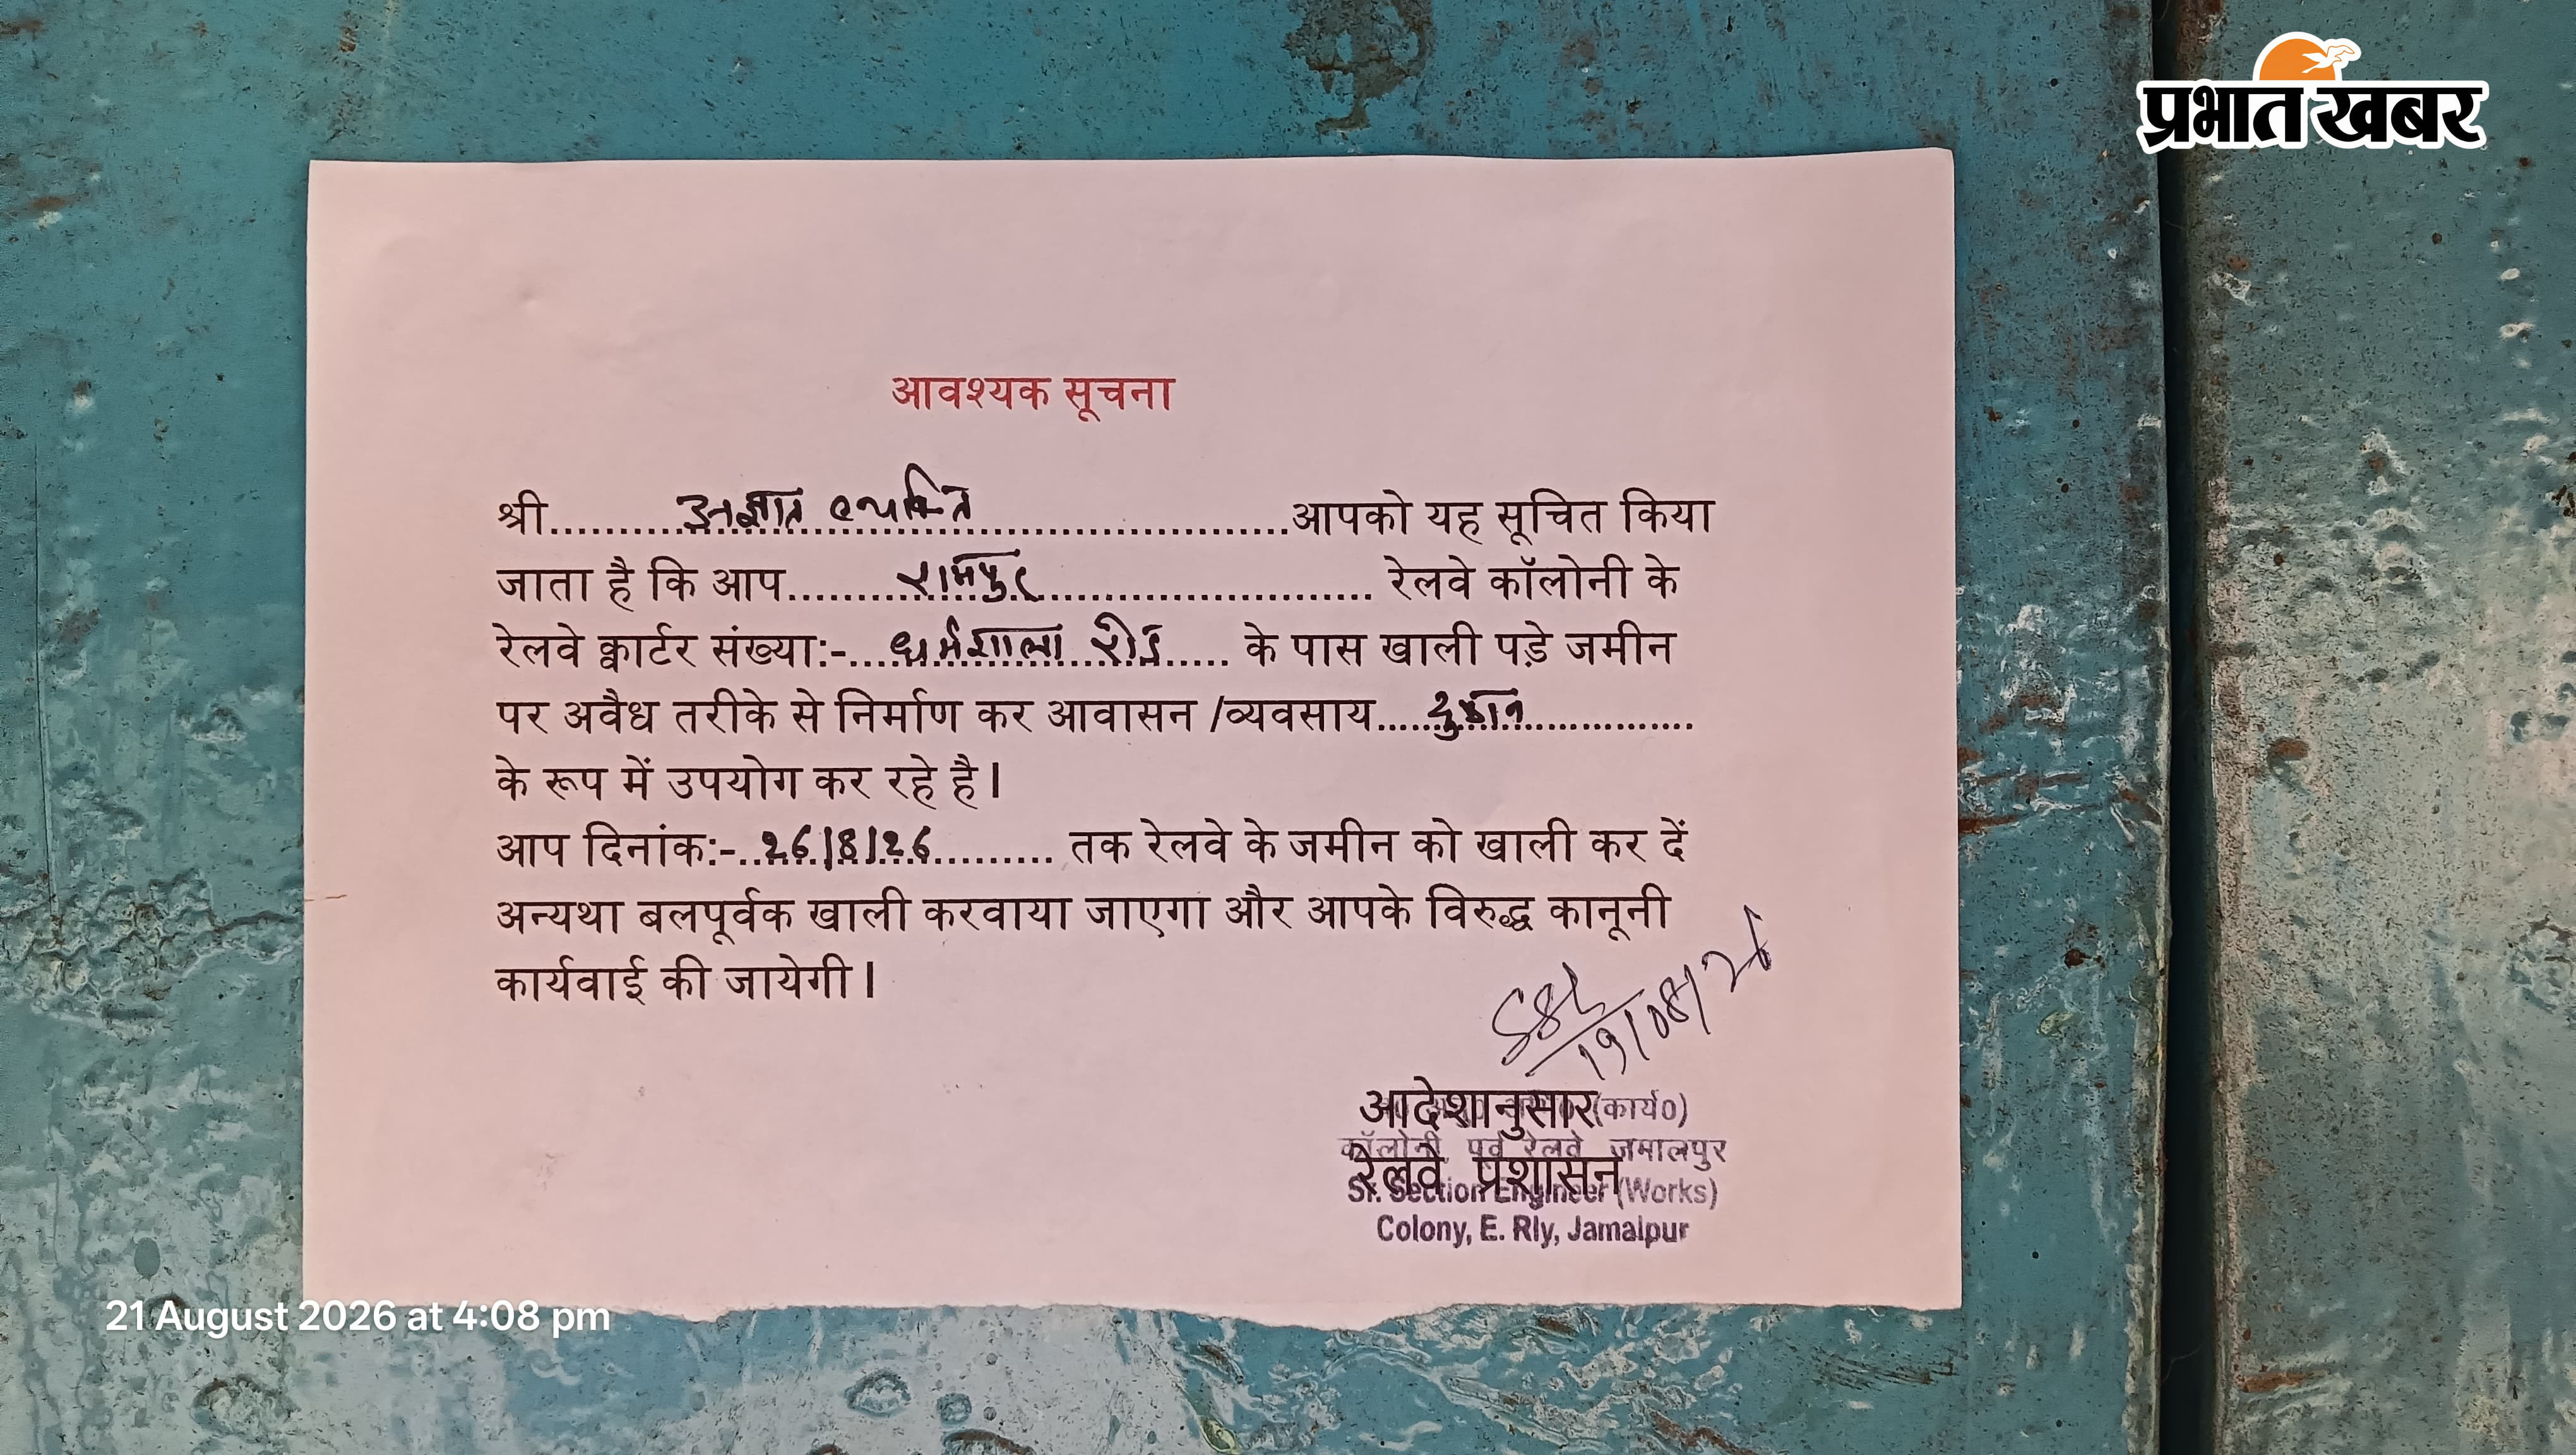 प्रभात खबर
आवश्यक सूचना
श्री.....अज्ञात व्यक्ति.....आपको यह सूचित किया
जाता है कि आप.....रामपुर..... रेलवे कॉलोनी के
रेलवे क्वार्टर संख्या:-.....धर्मशाला रोड..... के पास खाली पड़े जमीन
पर अवैध तरीके से निर्माण कर आवासन /व्यवसाय.....दुकान.....
के रूप में उपयोग कर रहे है।
आप दिनांक:-...26/8/26..... तक रेलवे के जमीन को खाली कर दें
अन्यथा बलपूर्वक खाली करवाया जाएगा और आपके विरुद्ध कानूनी
कार्यवाई की जायेगी।
19/08/26
आदेशानुसार (कार्य0)
कॉलोनी, पूर्व रेलवे, जमालपुर
रेलवे प्रशासन
Sr. Section Engineer (Works)
Colony, E. Rly, Jamalpur
21 August 2026 at 4:08 pm